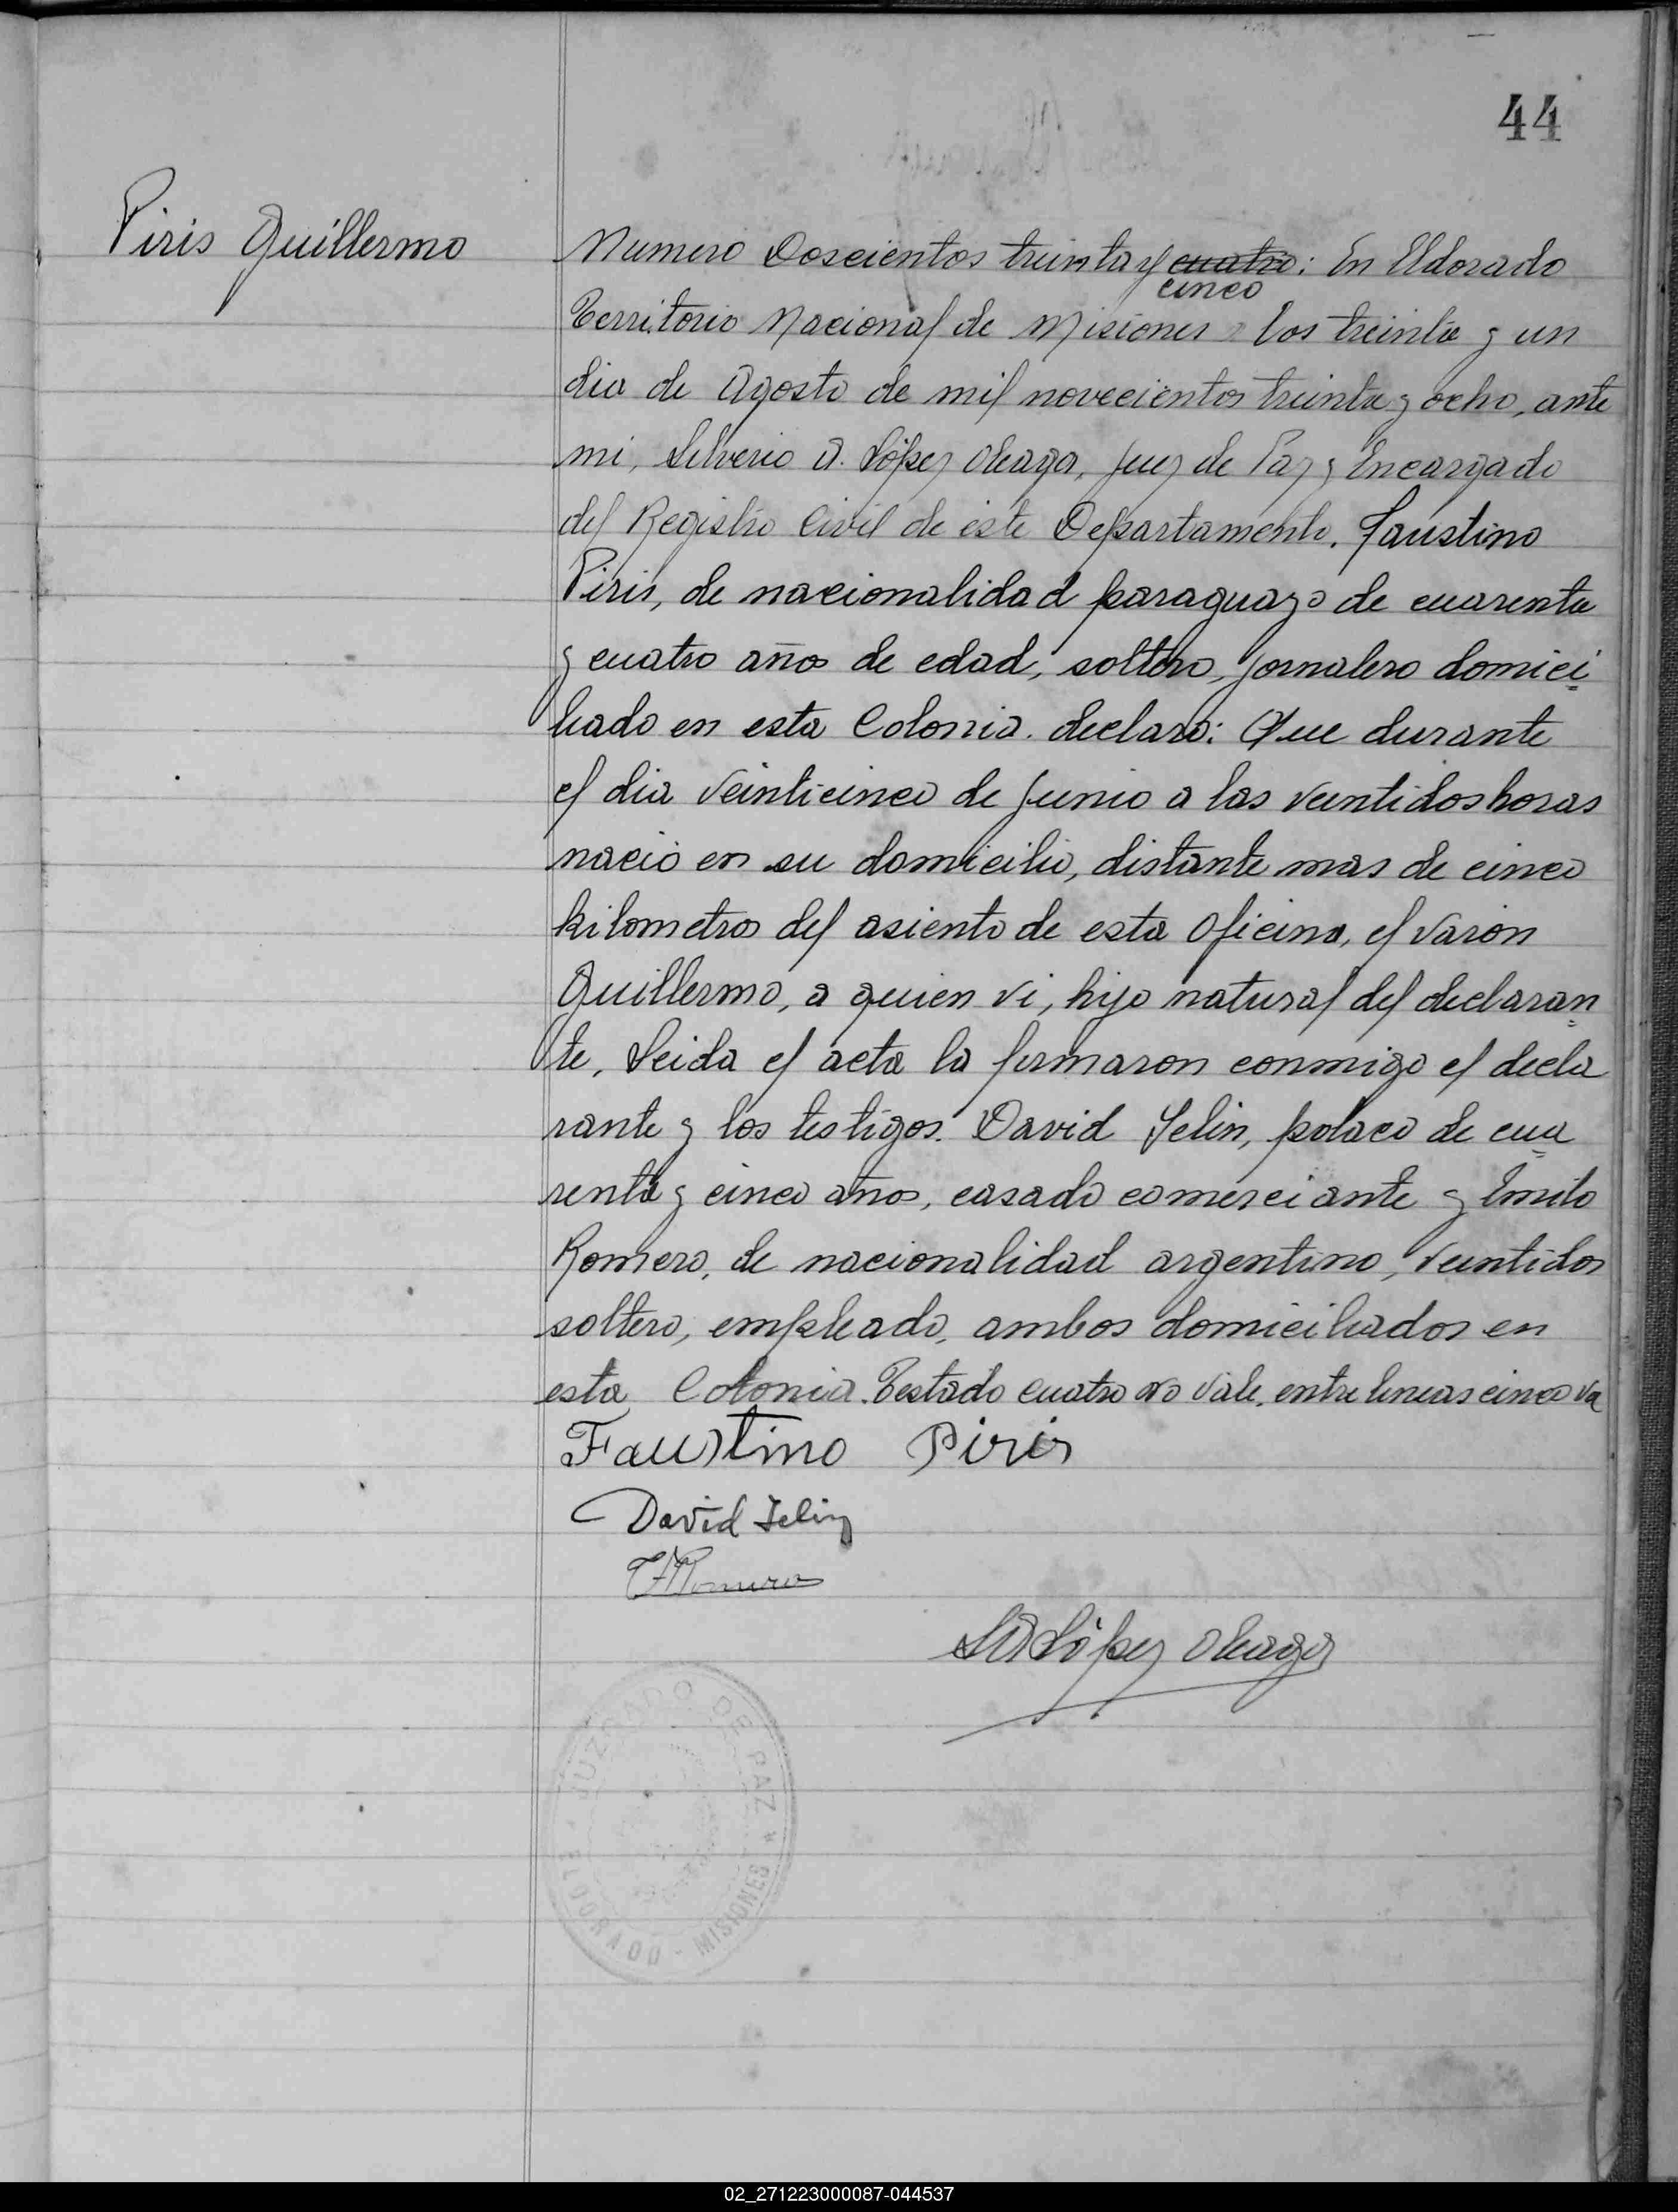 44
Piris Guillermo
Numero Doscientos treinta y cuatro: En Eldorado
cinco
Territorio Nacional de Misiones a los treinta y un
dia de Agosto de mil novecientos treinta y ocho, ante
mi, Silverio A. López Oleaga, Juez de Paz y Encargado
del Registro Civil de este Departamento, Faustino
Piris, de nacionalidad paraguayo de cuarenta
y cuatro años de edad, soltero, jornalero domici
liado en esta Colonia. declaro: Que durante
el dia veinticinco de Junio a las veintidos horas
nació en su domicilio, distante mas de cinco
kilometros del asiento de esta Oficina, el varon
Guillermo, a quien vi, hijo natural del declaran
te, Leida el acta la firmaron conmigo el decla
rante y los testigos. David Jelin, polaco de cua
renta y cinco años, casado comerciante y Emilo
Romero, de nacionalidad argentino, veintidos
soltero, empleado, ambos domiciliados en
esta Colonia. Testado cuatro no vale, entre lineas cinco va
Faustino Piris
David Jelin
Romero
SA López Oleaga
JUZGADO DE PAZ * ELDORADO - MISIONES
02_271223000087-044537